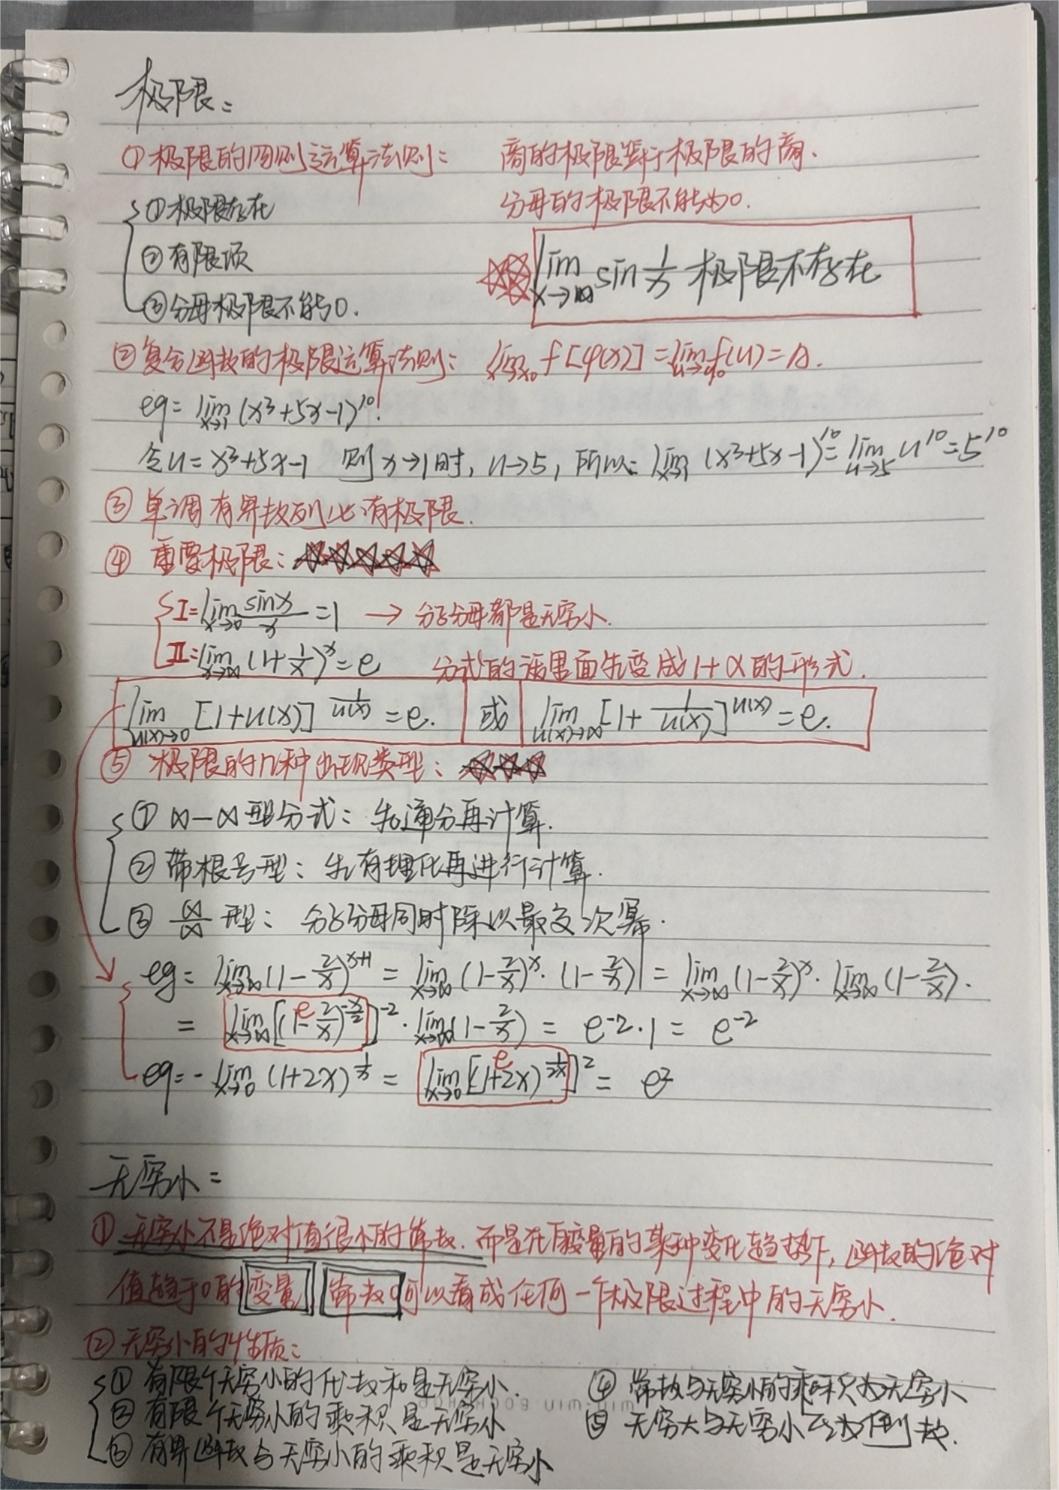 极限：
①极限的四则运算法则： 商的极限等于极限的商.
①极限存在 分母的极限不能为0.
②有限项
lim x→∞ sin 1/x 极限不存在
③分母极限不能为0.
②复合函数的极限运算法则： lim x→x₀ f[φ(x)] = lim u→u₀ f(u) = A.
eg: lim x→1 (x³+5x-1)¹⁰.
令u=x³+5x-1 则x→1时, u→5, 所以: lim x→1 (x³+5x-1)¹⁰ = lim u→5 u¹⁰ = 5¹⁰
③ 单调有界数列必有极限.
④ 重要极限：☆☆☆☆☆
I: lim x→0 sinx/x = 1 → 分子分母都是无穷小.
II: lim x→∞ (1+1/x)ˣ = e 分式的话里面先变成1+α的形式.
lim u(x)→0 [1+u(x)]^(1/u(x)) = e. 或 lim u(x)→∞ [1+1/u(x)]^u(x) = e.
⑤ 极限的几种出现类型：☆☆☆
① ∞-∞型分式：先通分再计算.
② 带根号型：先有理化再进行计算.
③ ∞/∞ 型： 分子分母同时除以最高次幂.
eg: lim x→∞ (1-2/x)^(x+1) = lim x→∞ (1-2/x)ˣ·(1-2/x) = lim x→∞ (1-2/x)ˣ · lim x→∞ (1-2/x).
= lim x→∞ [(1-2/x)^(-x/2)]⁻² · lim x→∞ (1-2/x) = e⁻²·1 = e⁻²
e
eg: lim x→0 (1+2x)^(1/x) = lim x→0 [(1+2x)^(1/2x)]² = e²
e
无穷小：
① 无穷小不是绝对值很小的常数. 而是在自变量的某种变化趋势下, 函数的绝对
值趋于0的变量 常数0可以看成任何一个极限过程中的无穷小.
② 无穷小的性质：
① 有限个无穷小的代数和是无穷小. ④ 常数与无穷小的乘积为无穷小
② 有限个无穷小的乘积是无穷小 ⑤ 无穷大与无穷小互为倒数.
③ 有界函数与无穷小的乘积是无穷小